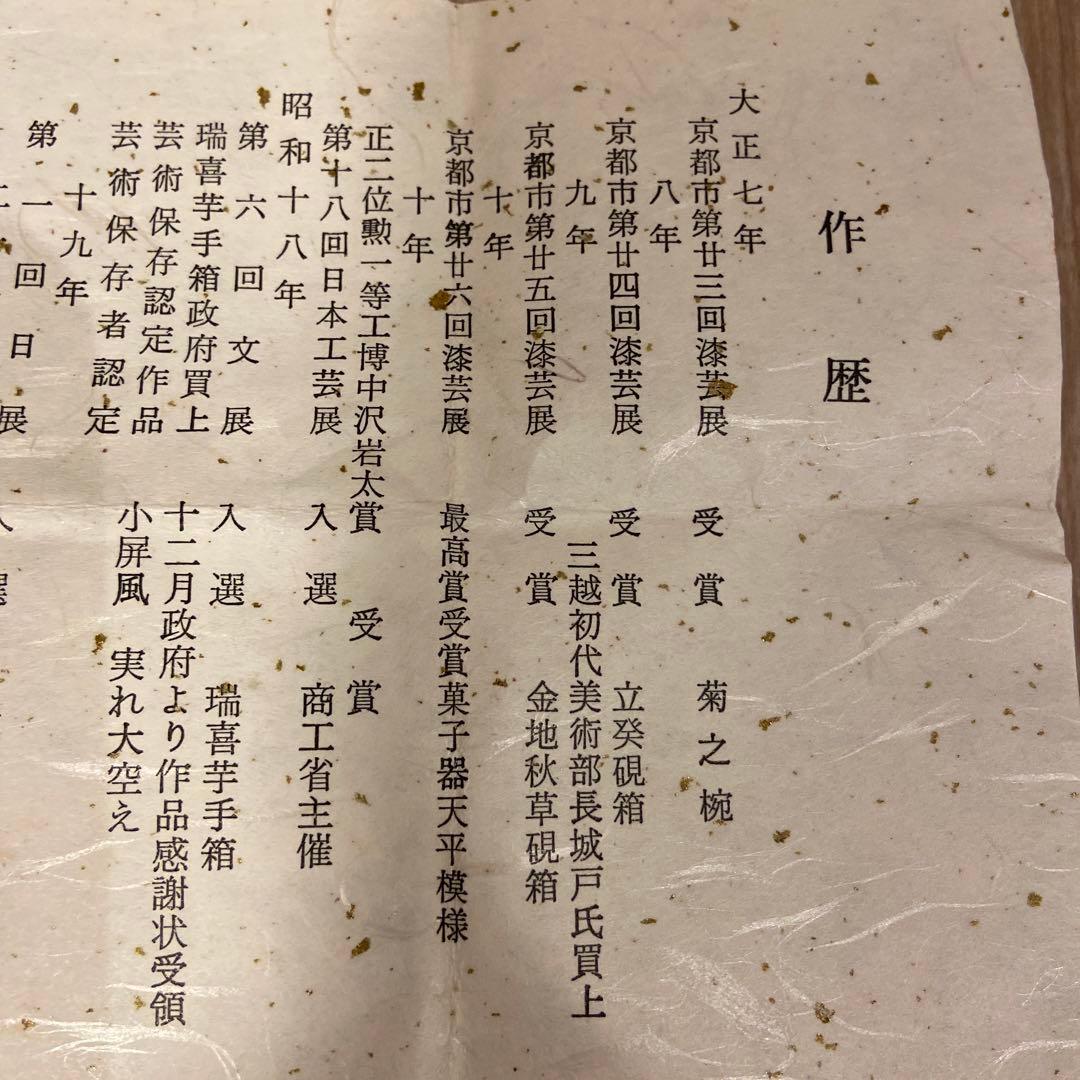 作歴
大正七年
京都市第廿三回漆芸展 受賞 菊之椀
八年
京都市第廿四回漆芸展 受賞 立癸硯箱
三越初代美術部長城戸氏買上
九年
京都市第廿五回漆芸展 受賞 金地秋草硯箱
十年
京都市第廿六回漆芸展 最高賞受賞菓子器天平模様
十年
正二位勲一等工博中沢岩太賞 受賞
第十八回日本工芸展 入選 商工省主催
昭和十八年
第六回文展 入選 瑞喜芋手箱
瑞喜芋手箱政府買上
芸術保存認定作品 十二月政府より作品感謝状受領
芸術保存者認定 小屏風 実れ大空え
十九年
第一回日展 入選